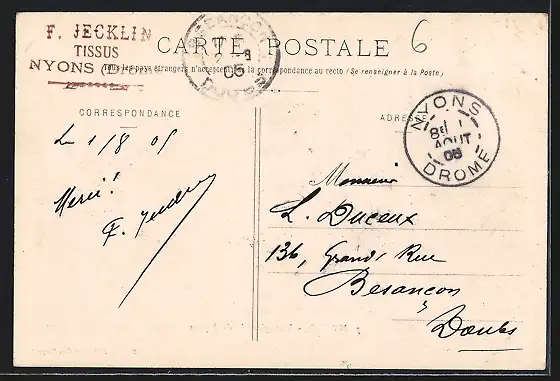 F. JECKLIN
TISSUS
NYONS
CARTE POSTALE
6
BESANÇON
05
DOUBS
Tous les pays étrangers n'acceptent pas la correspondance au recto (Se renseigner à la Poste)
CORRESPONDANCE
ADRESSE
NYONS
1
AOUT
05
DROME
Le 1/8 05
Merci!
F. Jecklin
Monsieur
L. Duceux
136, Grande Rue
Besançon
Doubs